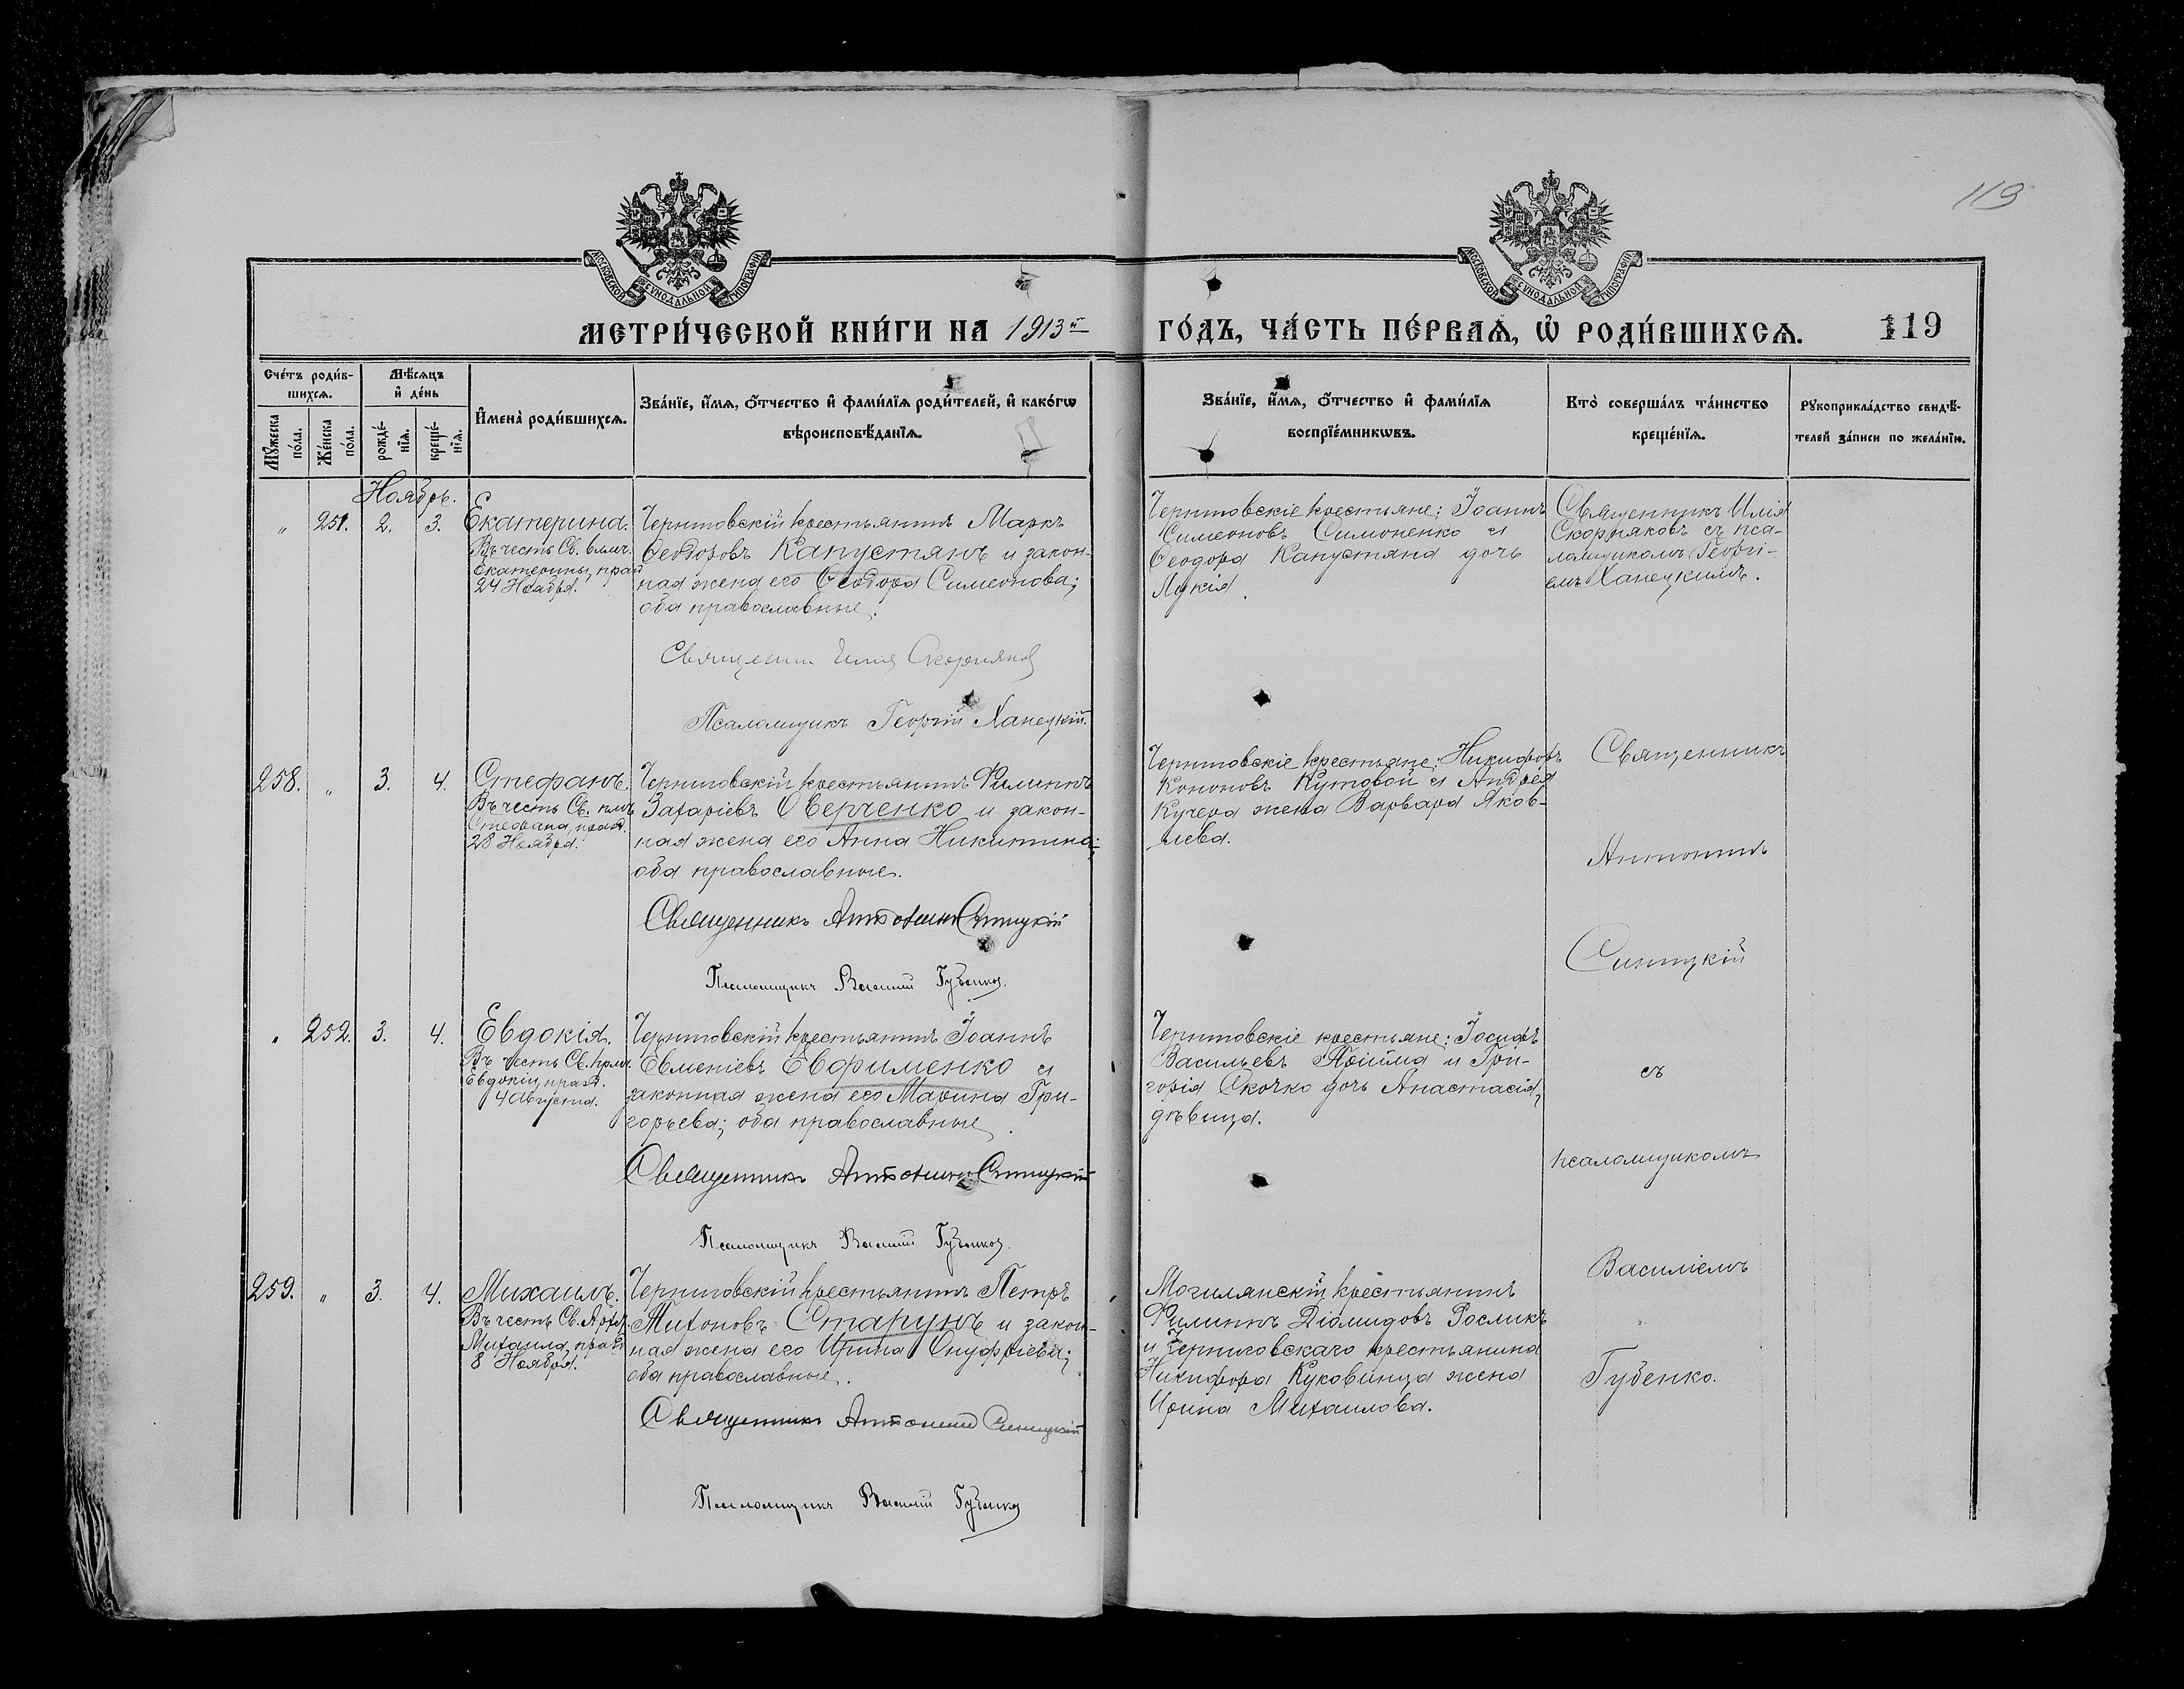 119
МОСКОВСКОЙ СѴНОДАЛЬНОЙ ТИПОГРАФІИ
МОСКОВСКОЙ СѴНОДАЛЬНОЙ ТИПОГРАФІИ
МЕТРИ́ЧЕСКОЙ КНИ́ГИ НА 1913й ГО́ДЪ, ЧА́СТЬ ПЕ́РВАѦ, Ѡ҆ РОДИ́ВШИХСѦ. 119
Сче́тъ роди́в-
шихсѧ.
Мꙋ́жеска
по́ла.
Же́нска
по́ла.
Мѣ́сѧцъ
и҆ де́нь
рожде́-
нїѧ.
креще́-
нїѧ.
И҆мена̀ роди́вшихсѧ.
Зва́нїе, и҆́мѧ, ѻ҆́тчество и҆ фами́лїѧ роди́телей, и҆ како́гѡ
вѣроисповѣ́данїѧ.
Зва́нїе, и҆́мѧ, ѻ҆́тчество и҆ фами́лїѧ
воспрїе́мникѡвъ.
Кто̀ соверша́лъ та́инство
креще́нїѧ.
Рꙋкоприкла́дство свидѣ́-
телей за́писи по жела́нїю.
Ноябрь.
" 251. 2. 3.
Екатерина.
Въ честь Св. влмч.
Екатерины, празд
24 Ноября.
Черниговскій крестьянинъ Маркъ
Ѳеодоровъ Капустянъ и закон-
ная жена его Ѳеодора Симеонова;
оба православные.
Священник Илия Скорняков
Псаломщикъ Георгій Ханецкій.
Черниговскіе крестьяне: Іоаннъ
Симеоновъ Симоненко и
Ѳеодора Капустяна дочь
Лукія.
Священникъ Илія
Скорняковъ съ пса-
ломщикомъ Георгі-
емъ Ханецкимъ.
258. " 3. 4.
Стефанъ.
Въ честь Св. пмч.
Стефана, празд.
28 Ноября.
Черниговскій крестьянинъ Филиппъ
Захаріевъ Оверченко и закон-
ная жена его Анна Никитина;
оба православные.
Священникъ Антонинъ Синицкій
Псаломщикъ Василій Губенко.
Черниговскіе крестьяне: Никифоръ
Кононовъ Кутовой и Андрея
Кучера жена Варвара Яков-
лева.
Священникъ
Антонинъ
Синицкій
съ
псаломщикомъ
Василіемъ
Губенко.
" 252. 3. 4.
Евдокія.
Въ честь Св. прмч.
Евдокіи, празд.
4 Августа.
Черниговскій крестьянинъ Іоаннъ
Евменіевъ Евфименко и
законная жена его Марина Гри-
горьева; оба православные.
Священникъ Антонинъ Синицкій
Псаломщикъ Василій Губенко.
Черниговскіе крестьяне: Іосифъ
Васильевъ Пріима и Гри-
горія Скочко дочь Анастасія,
дѣвица.
259. " 3. 4.
Михаилъ.
Въ честь Св. Архг.
Михаила, празд
8 Ноября.
Черниговскій крестьянинъ Петръ
Тихоновъ Старунъ и закон-
ная жена его Ирина Онуфріева;
оба православные.
Священникъ Антонинъ Синицкій
Псаломщикъ Василій Губенко
Могилянскій крестьянинъ
Филиппъ Діомидовъ Росликъ
и Черниговскаго крестьянина
Никифора Куковинца жена
Ирина Михаилова.